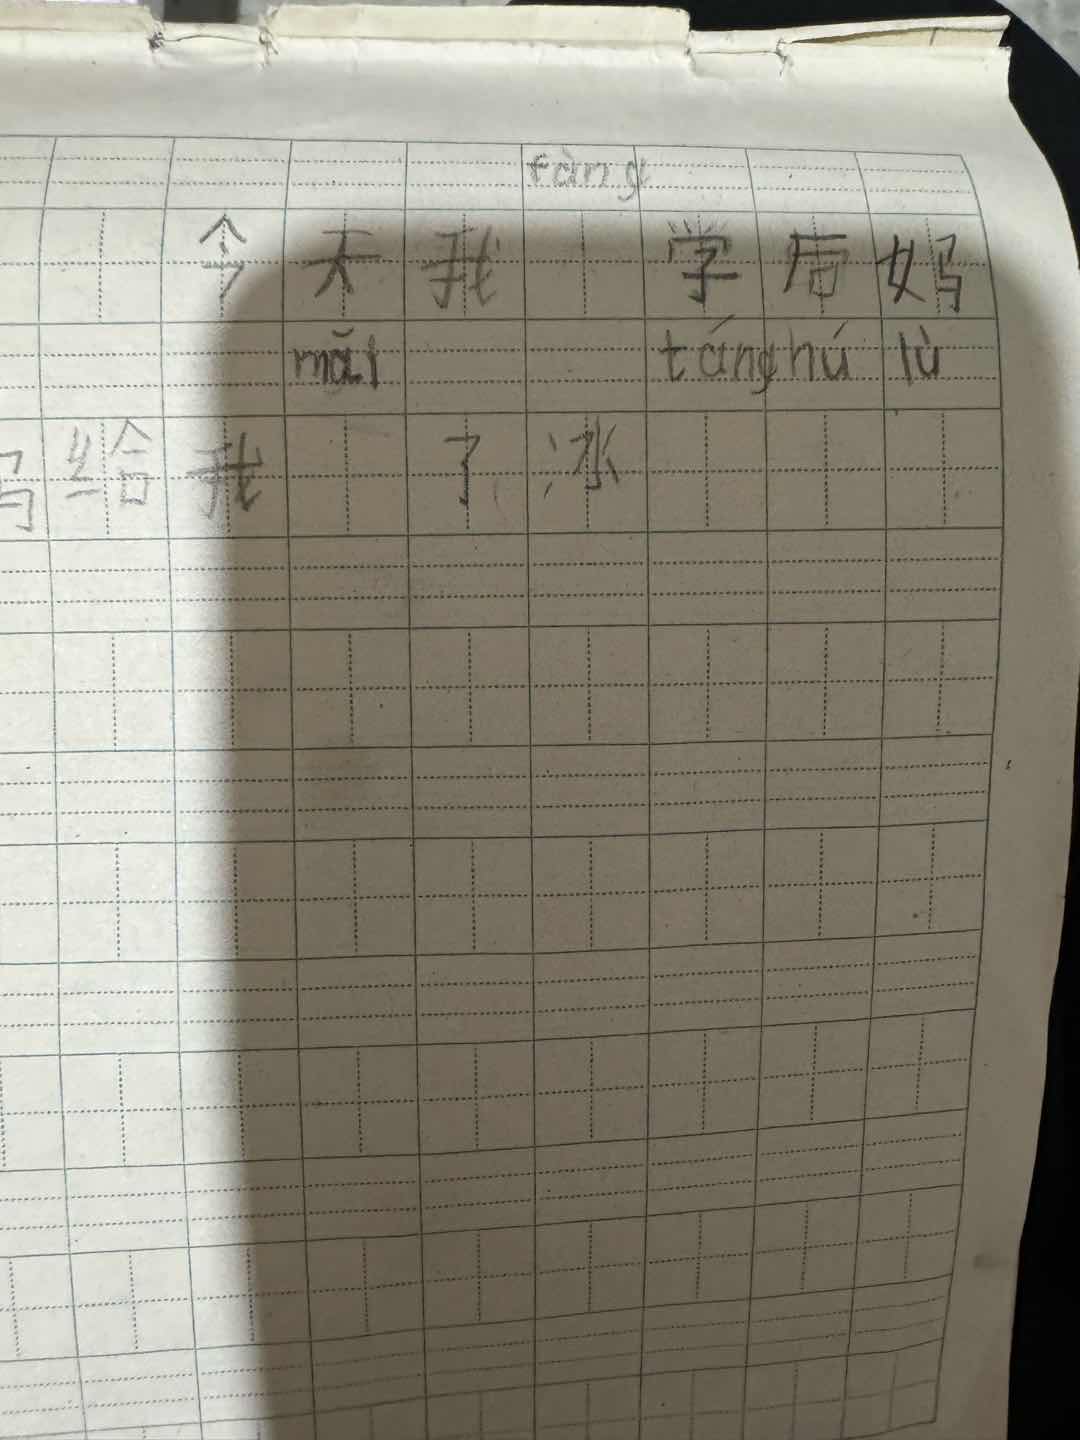 fàng
今天我 学后妈
mǎi táng hú lù
妈给我 了冰